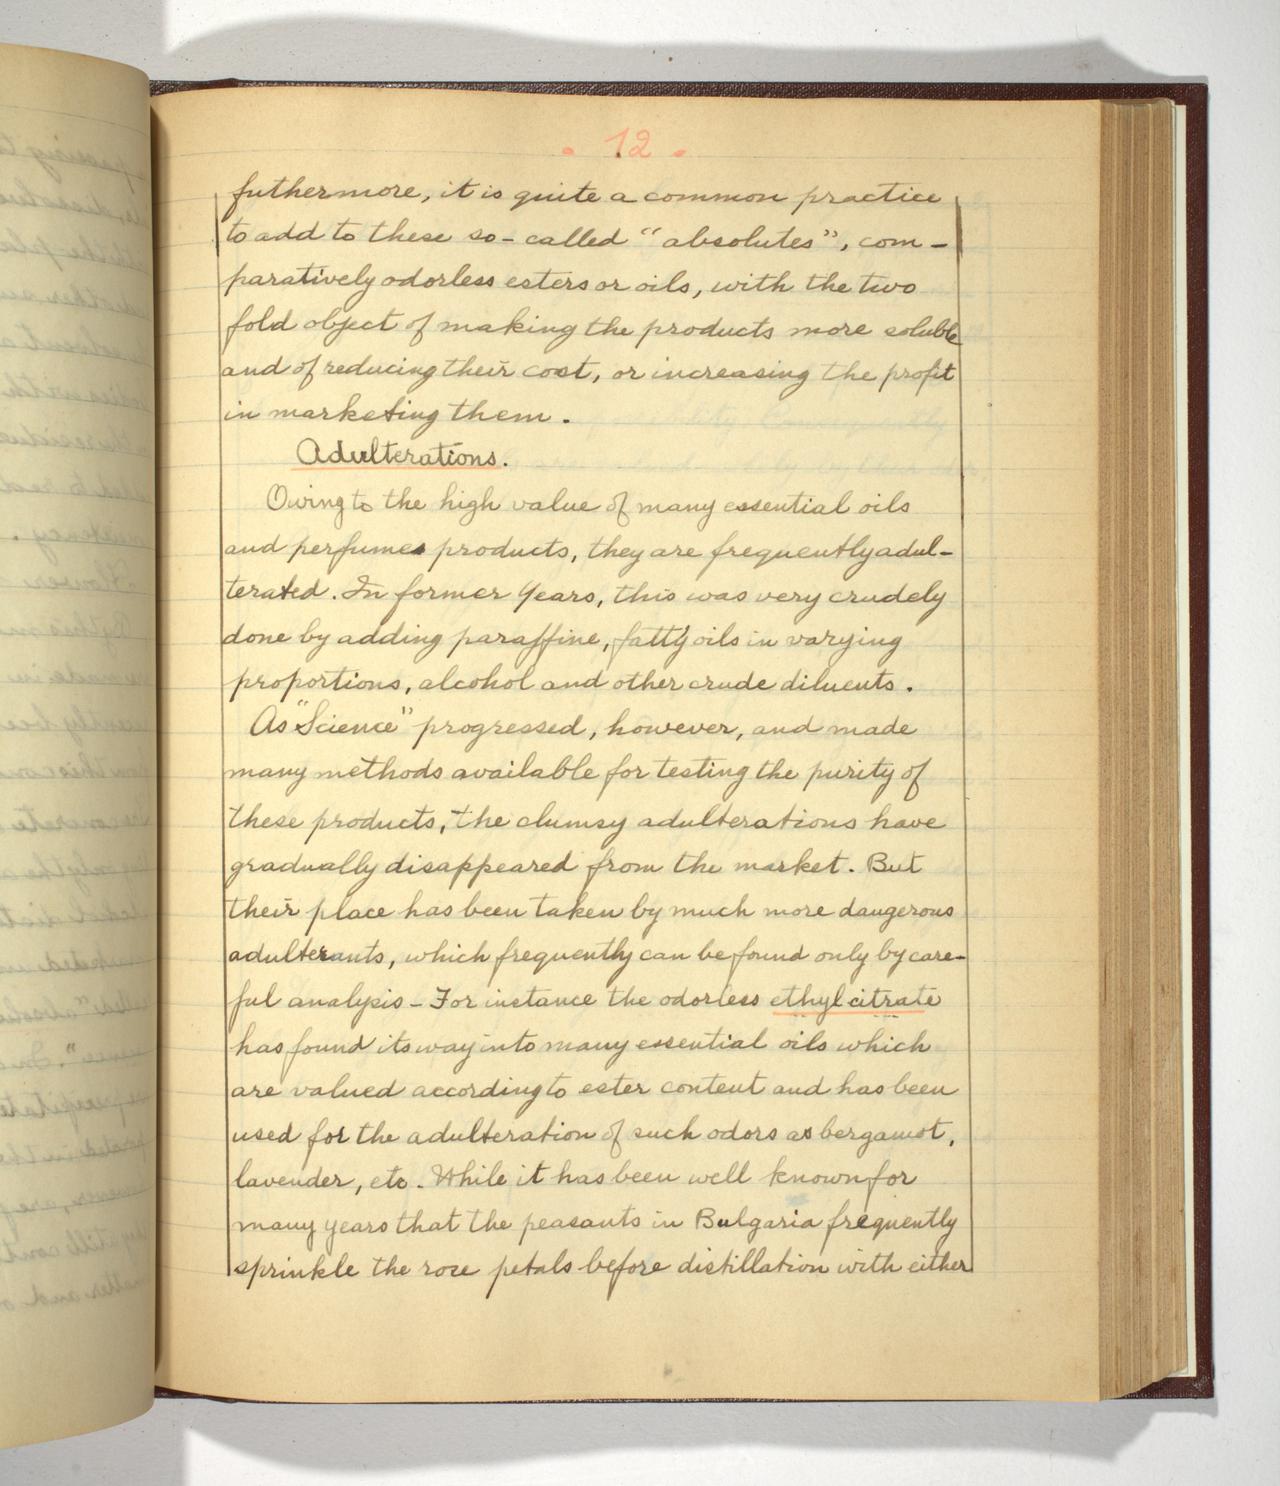 . 12 .
futhermore, it is quite a common practice
to add to these so-called "absolutes", com-
paratively odorless esters or oils, with the two
fold object of making the products more soluble
and of reducing their cost, or increasing the profit
in marketing them.
Adulterations.
Owing to the high value of many essential oils
and perfumes products, they are frequently adul-
terated. In former years, this was very crudely
done by adding paraffine, fatty oils in varying
proportions, alcohol and other crude diluents.
As "Science" progressed, however, and made
many methods available for testing the purity of
these products, the clumsy adulterations have
gradually disappeared from the market. But
their place has been taken by much more dangerous
adulterants, which frequently can be found only by care-
ful analysis - For instance the odorless ethyl citrate
has found its way into many essential oils which
are valued according to ester content and has been
used for the adulteration of such odors as bergamot,
lavender, etc. While it has been well known for
many years that the peasants in Bulgaria frequently
sprinkle the rose petals before distillation with either